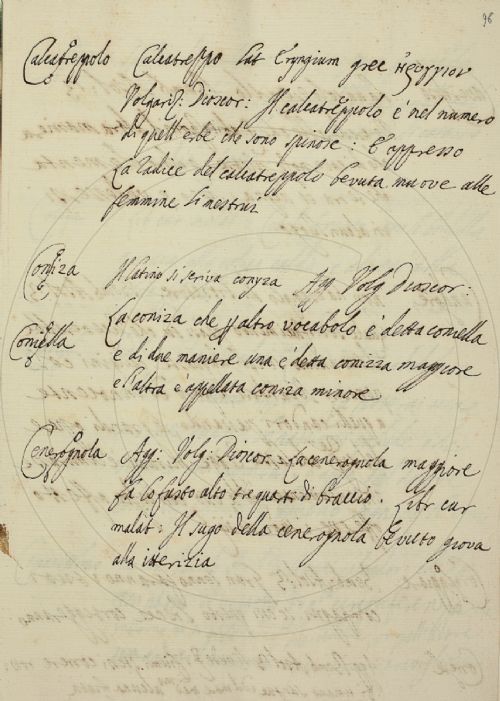 98
Calcatreppolo Calcatreppo lat Eryngium grec ἠρύγγιον
Volgariz: Dioscor: Il calcatreppolo è nel numero
di quell'erbe che sono spinose: E appresso
La radice del calcatreppolo bevuta muove alle
femmine li mestrui
Coniza Il latino si scriva conyza Agg Volg Dioscor:
La coniza che altro vocabolo è detta coniella
Coniella
e di due maniere una e detta conizza maggiore
e l'altra è appellata coniza minore
Cenerognola Agg: Volg: Dioscor. La cenerognola maggiore
fa lo fusto alto tre quarti di braccio. Libr cur
malat: Il sugo della cenerognola bevuto giova
alla itterizia